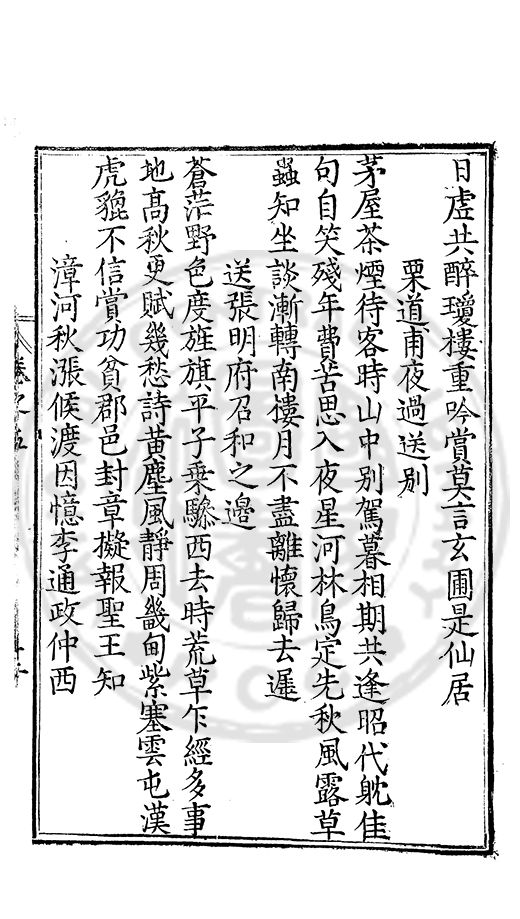 日虛共醉瓊樓重吟賞莫言玄圃是仙居
栗道甫夜過送别
茅屋茶煙待客時山中别駕暮相期共逢昭代躭佳
句自笑殘年費苦思入夜星河林鳥定先秋風露草
蟲知坐談漸轉南樓月不盡離懷歸去遲
送張明府召和之邊
蒼茫野色度旌旗平子乗驂西去時荒草乍經多事
地髙秋更賦幾愁詩黄塵風靜周畿甸紫塞雲屯漢
虎貔不信賞功貧郡邑封章擬報聖王知
漳河秋漲候渡因憶李通政仲西